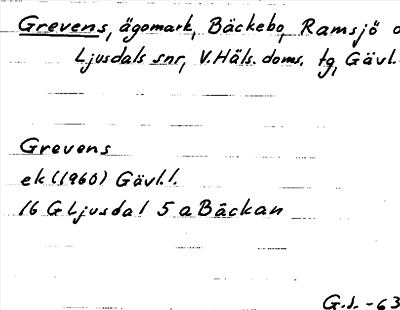 Grevens, ägomark, Bäckebo, Ramsjö o
Ljusdals snr, V. Häls. doms. tg, Gävl.
Grevens
ek (1960) Gävl. l.
16 G Ljusdal 5 a Bäckan
G.J. -63